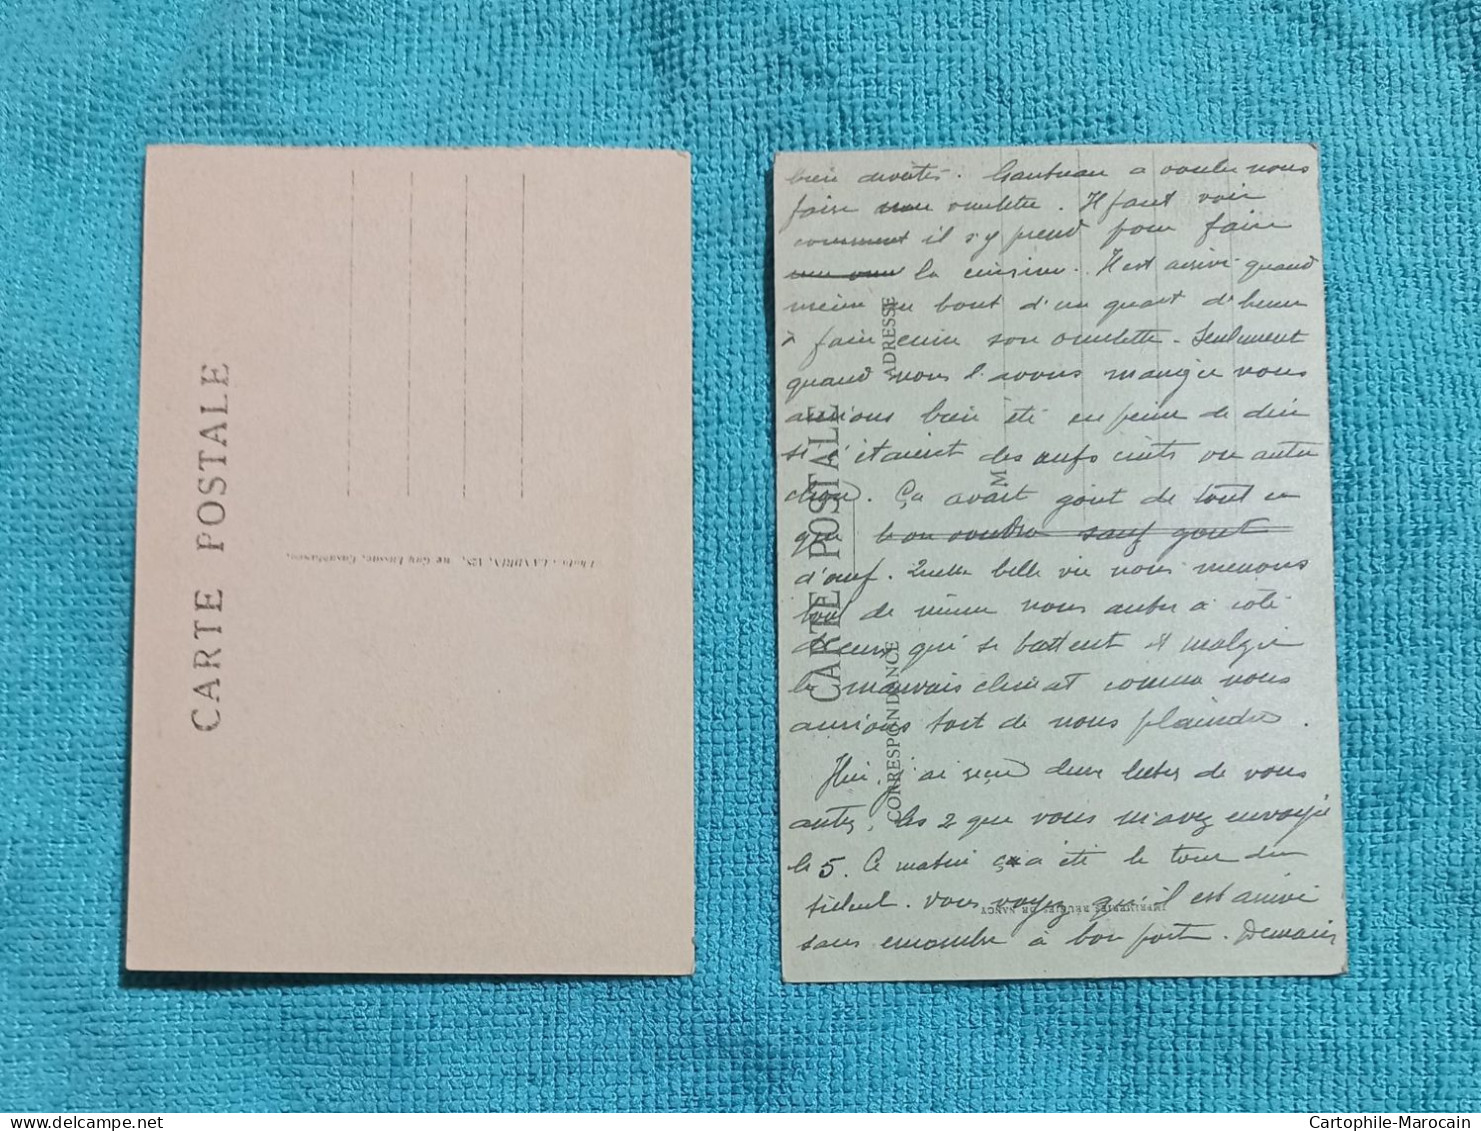 CARTE POSTALE
Photo: LANDRIN, 128, rue Guy Lussac, Casablanca.
bien dévotés. Gautreau a voulu nous
faire une omelette. Il faut voir
comment il s'y prend pour faire
la cuisine. Il est arrivé quand
même au bout d'un quart d'heure
à faire cuire son omelette. Seulement
quand nous l'avons mangée nous
aurions bien été en peine de dire
si c'étaient des œufs cuits ou autre
chose. Ça avait goût de tout en
que bon voudra sauf goût
d'œuf. Quelle belle vie nous menons
tout de même nous autres à côté
de ceux qui se battent et malgré
le mauvais climat comme nous
aurions tort de nous plaindre.
Hier j'ai reçu deux lettres de vous
autres, les 2 que vous m'avez envoyé
le 5. Ce matin ç'a été le tour du
. Vous voyez qu'il est arrivé
sans encombre à bon port. Demain
CARTE POSTALE
CORRESPONDANCE
ADRESSE
M
IMPRIMERIES RÉUNIES DE NANCY
Cartophile-Marocain